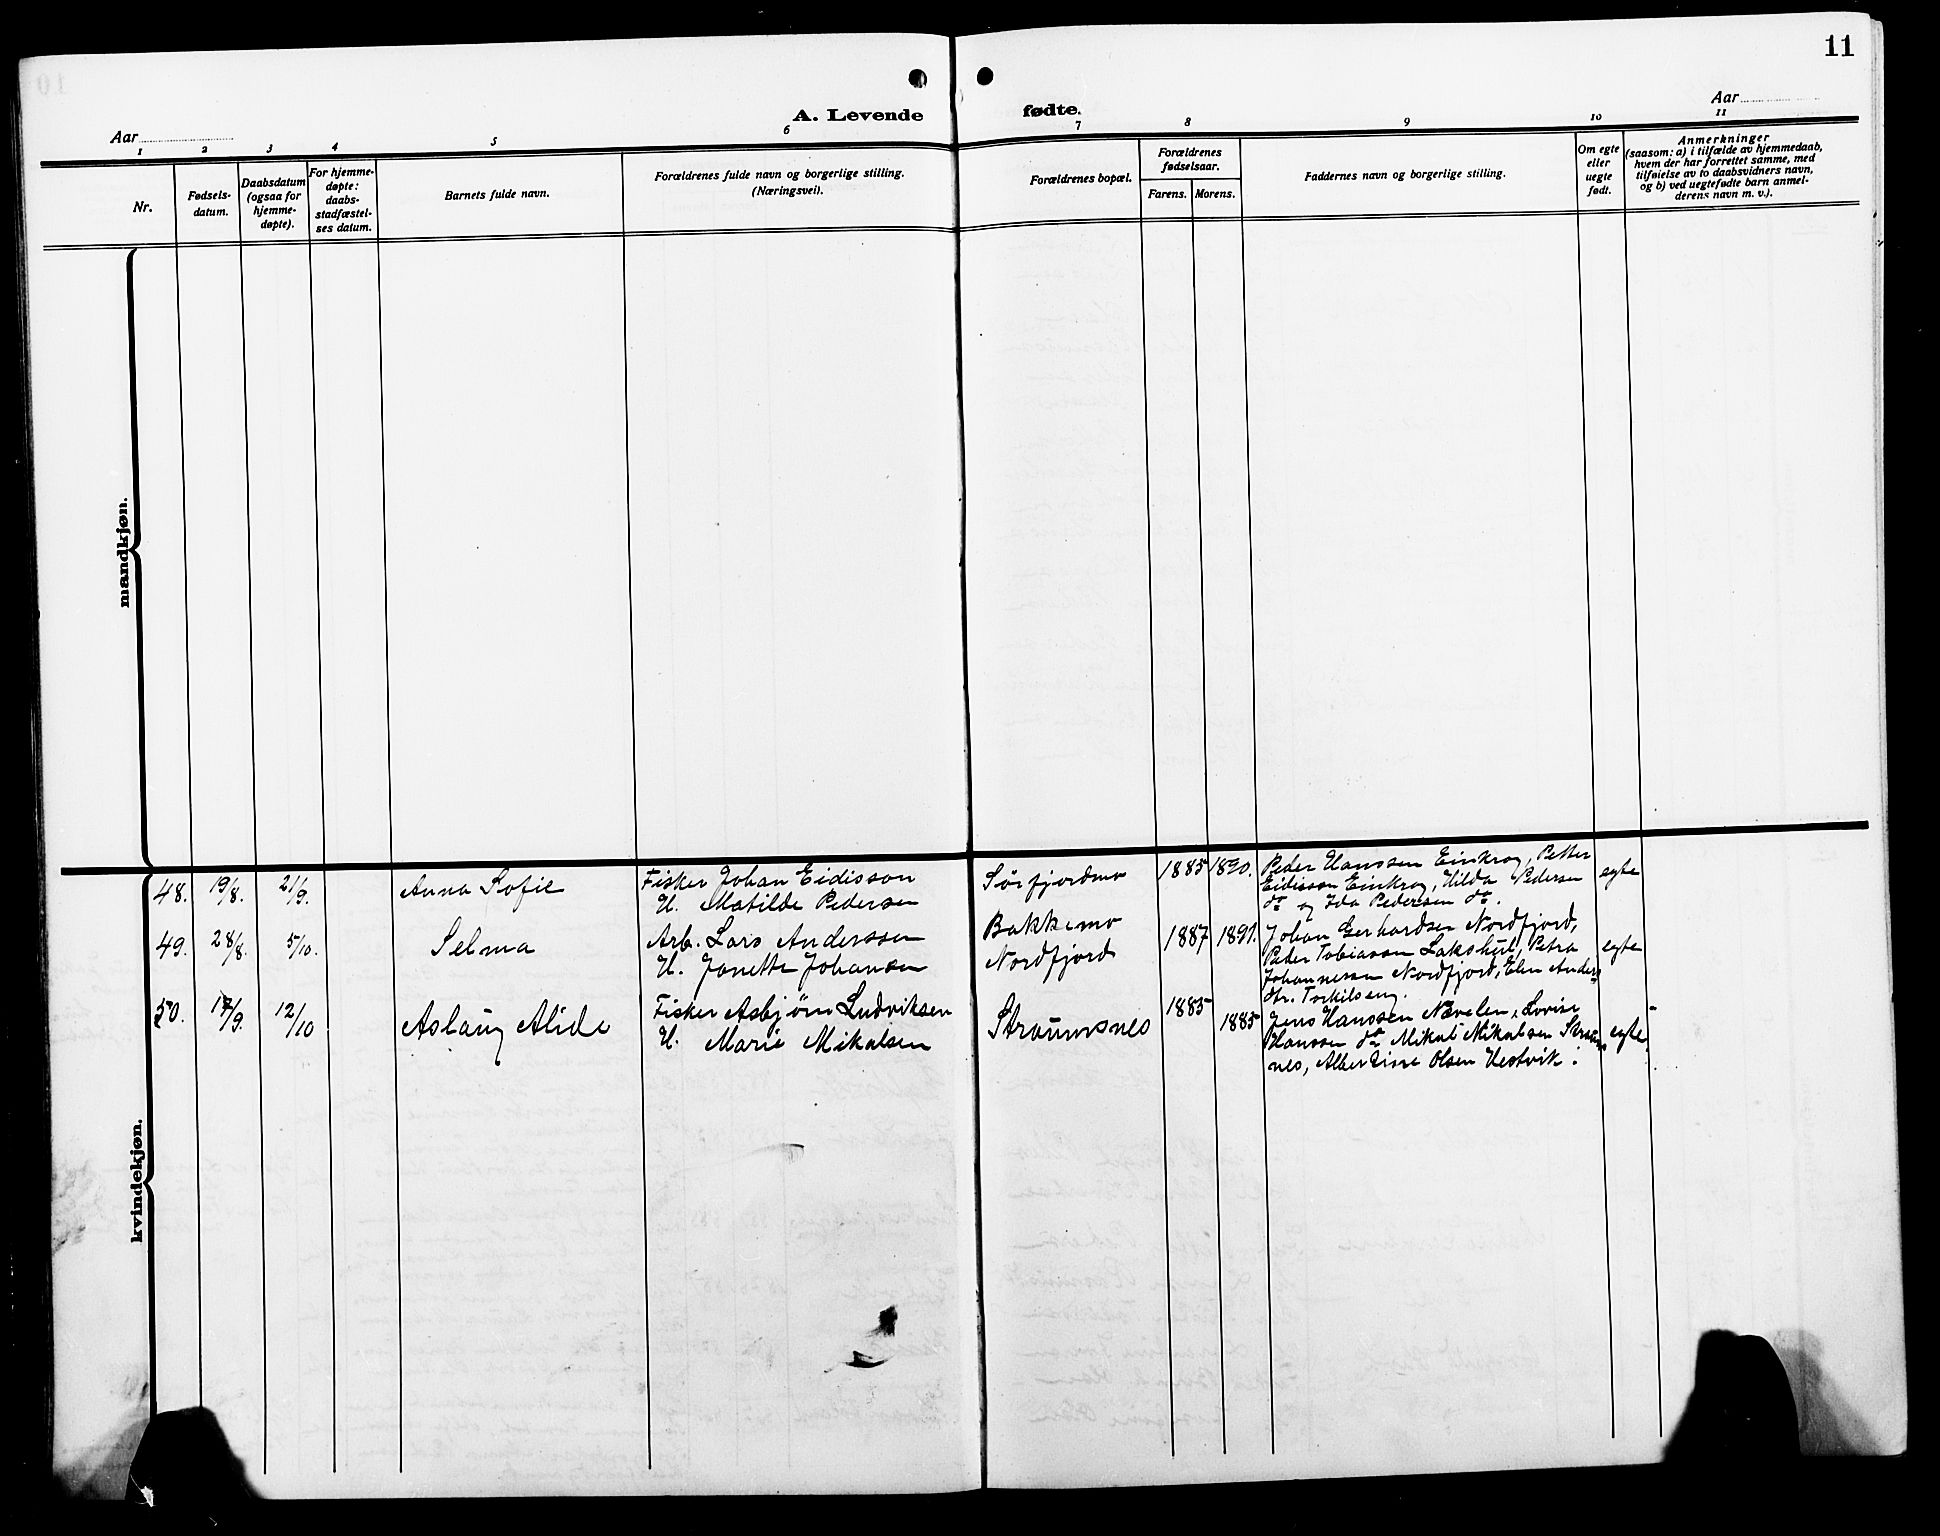 11
A. Levende fødte.
Aar
Aar
1 2 3 4 5 6 7 8 9 10 11
Nr.
Fødsels-
datum.
Daabsdatum
(ogsaa for
hjemme-
døpte).
For hjemme-
døpte:
daabs-
stadfæstel-
ses datum.
Barnets fulde navn.
Forældrenes fulde navn og borgerlige stilling.
(Næringsvei).
Forældrenes bopæl.
Forældrenes
fødselsaar.
Farens. Morens.
Faddernes navn og borgerlige stilling.
Om egte
eller
uegte
født.
Anmerkninger
(saasom: a) i tilfælde av hjemmedaab,
hvem der har forrettet samme, med
tilføielse av to daabsvidners navn,
og b) ved uegtefødte barn anmel-
derens navn m. v.).
mandkjøn.
kvindekjøn.
48. 19/8. 21/9. Anna Sofie
Fisker Johan Eidisson
H. Matilde Pedersen
Sørfjordmo
1885 1890.
Peder Hanssen Einkrog, Petter
Eidisson Einkrog, Hilda Pedersen
do og Ida Pedersen do.
egte
49. 28/8. 5/10. Selma
Arb. Lars Anderssen
H. Janette Johansen
Bakkemo
Nordfjord
1887 1891.
Johan Gerhardsen Nordfjord,
Peder Tobiassen Lakshul, Petra
Johannessen Nordfjord, Elen Anders
dtr. Torkilseng.
egte
50. 17/9. 12/10 Aslaug Alide
Fisker Asbjørn Ludviksen
H. Marie Mikalsen
Straumsnes
1885 1885
Jens Hanssen Nævelen, Lovise
Hanssen do Mikal Mikalsen Straums
nes, Albertine Olsen Hestvik.
egte